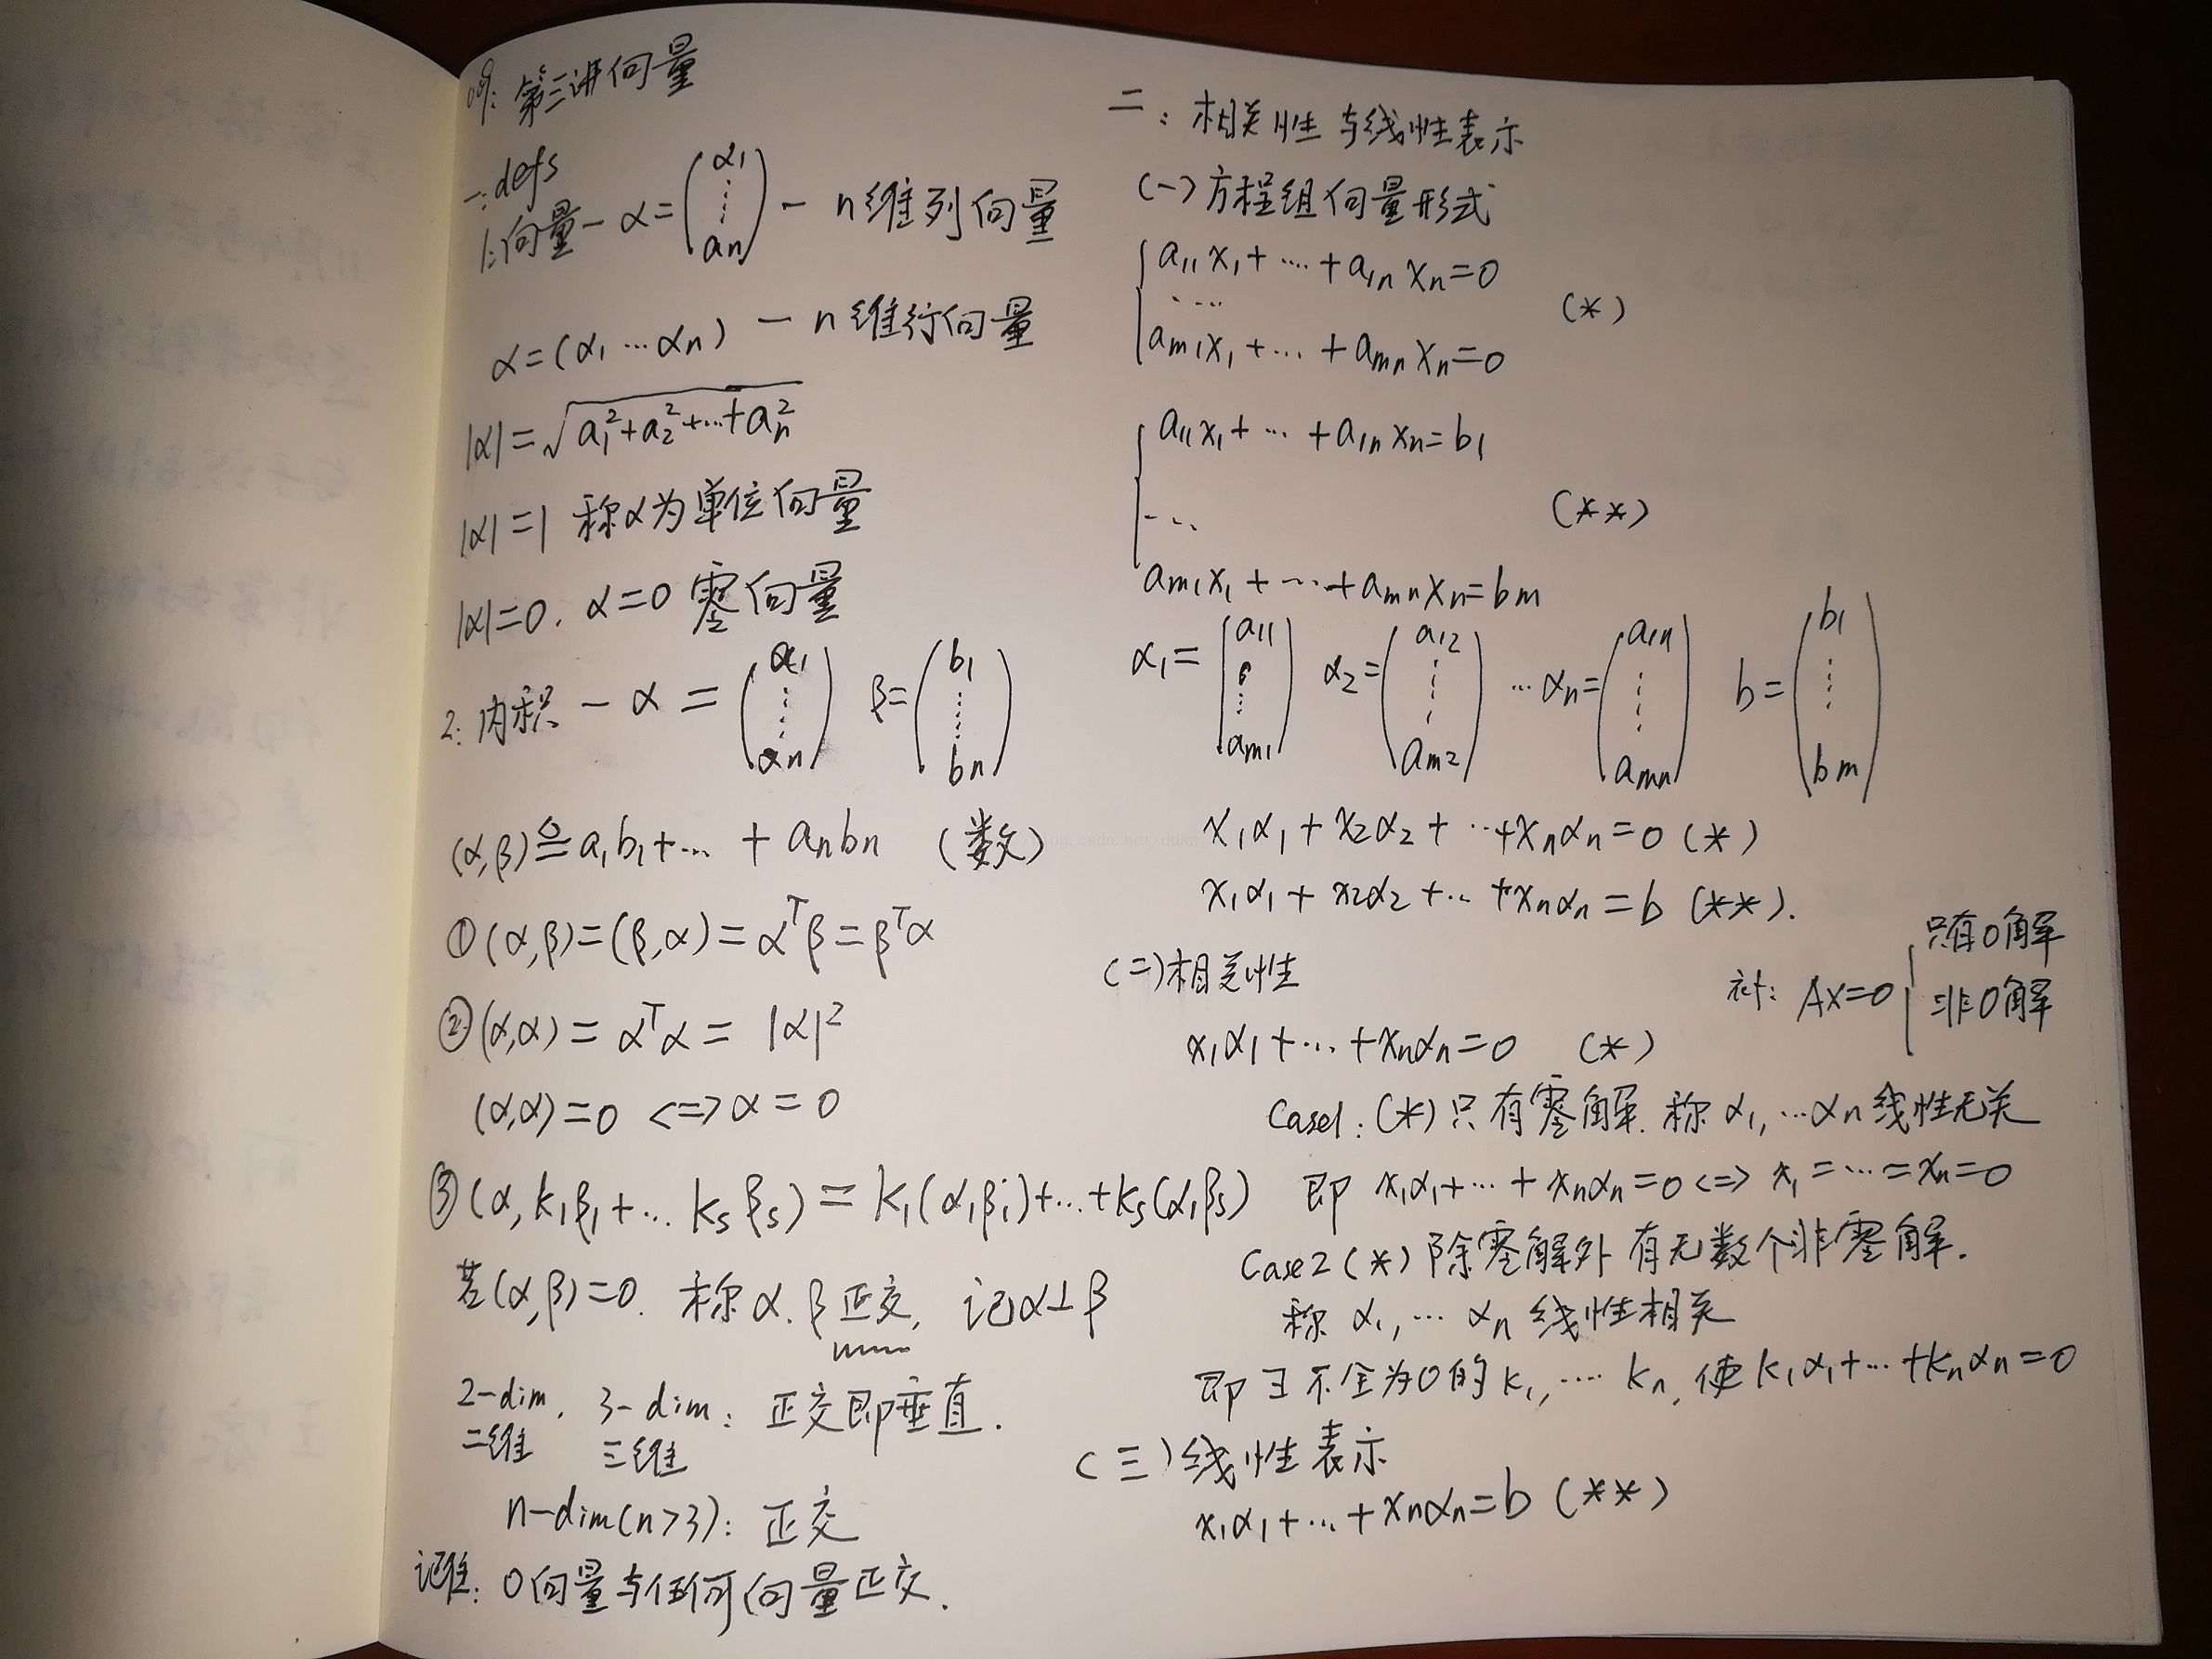 09: 第三讲 向量
一: defs
1: 向量 - α = (α1 ⋮ an) - n维列向量
α = (α1 … αn) - n维行向量
|α| = √(a1² + a2² + … + an²)
|α| = 1 称α为单位向量
|α| = 0. α = 0 零向量
2: 内积 - α = (α1 ⋮ αn) β = (b1 ⋮ bn)
(α,β) ≙ a1b1 + … + anbn (数)
① (α,β) = (β,α) = α^T β = β^T α
② (α,α) = α^T α = |α|²
(α,α) = 0 <=> α = 0
③ (α, k1β1 + … ksβs) = k1(α1βi) + … + ks(α1βs)
若(α,β) = 0. 称α.β正交, 记α⊥β
2-dim. 3-dim: 正交即垂直.
二维 三维
n-dim(n>3): 正交
记住: 0向量与任何向量正交.
二: 相关性与线性表示
(一) 方程组向量形式
{ a11x1 + … + a1nxn = 0
… (*)
am1x1 + … + amnxn = 0
{ a11x1 + … + a1nxn = b1
… (**)
am1x1 + … + amnxn = bm
α1 = (a11 ⋮ am1) α2 = (a12 ⋮ am2) … αn = (a1n ⋮ amn) b = (b1 ⋮ bm)
x1α1 + x2α2 + … + xnαn = 0 (*)
x1α1 + x2α2 + … + xnαn = b (**).
(二) 相关性
补: AX=0 { 只有0解
非0解
x1α1 + … + xnαn = 0 (*)
Case1: (*) 只有零解. 称 α1, … αn 线性无关
即 x1α1 + … + xnαn = 0 <=> x1 = … = xn = 0
Case2 (*) 除零解外 有无数个非零解.
称 α1, … αn 线性相关
即 ∃ 不全为0的 k1, … kn, 使 k1α1 + … + knαn = 0
(三) 线性表示
x1α1 + … + xnαn = b (**)